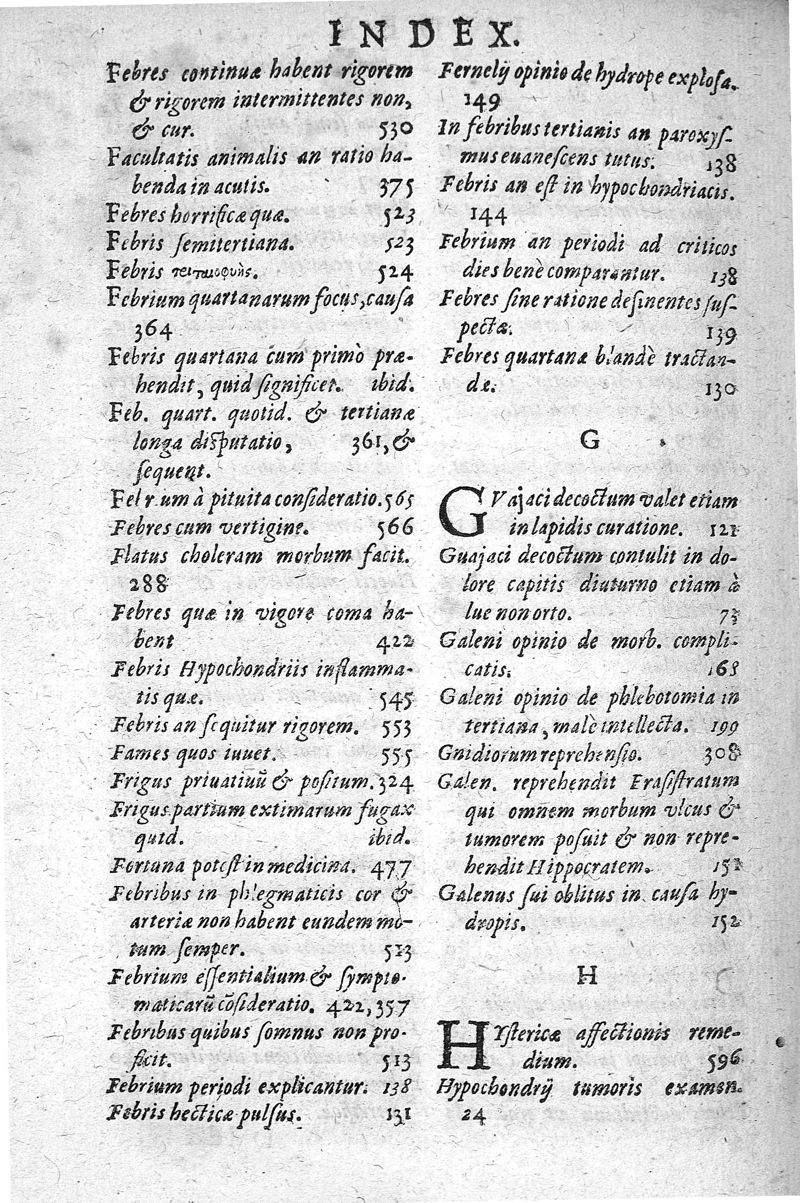 INDEX.
Febres continuæ habent rigorem
& rigorem intermittentes non,
& cur. 530
Facultatis animalis an ratio ha-
benda in acutis. 375
Febres horrificæ quæ. 523
Febris ſemitertiana. 523
Febris 524
Febrium quartanarum focus, cauſa
364
Febris quartana cum primò præ-
hendit, quid ſignificet. ibid.
Feb. quart. quotid. & tertianæ
longa diſputatio, 361, &
ſequent.
Febrium à pituita conſideratio. 565
Febres cum vertigine. 566
Flatus choleram morbum facit.
288
Febres quæ in vigore coma ha-
bent 422
Febris Hypochondriis inflamma-
tis quæ. 545
Febris an ſequitur rigorem. 553
Fames quos iuuet. 555
Frigus priuatiuũ & poſitum. 324
Frigus partium extimarum fugax
quid. ibid.
Fortuna poteſt in medicina. 477
Febribus in phlegmaticis cor &
arteriæ non habent eundem mo-
tum ſemper. 513
Febrium eſſentialium & ſympto-
maticarũ cõſideratio. 422, 357
Febribus quibus ſomnus non pro-
ficit. 513
Febrium periodi explicantur. 138
Febris hecticæ pulſus. 131
Fernelij opinio de hydrope exploſa.
149
In febribus tertianis an paroxyſ-
mus euaneſcens tutus. 138
Febris an eſt in hypochondriacis.
144
Febrium an periodi ad criticos
dies benè comparentur. 138
Febres ſine ratione deſinentes ſuſ-
pectæ. 139
Febres quartanæ blandè tractan-
dæ. 130
G
GVajaci decoctum valet etiam
in lapidis curatione. 121
Guajaci decoctum contulit in do-
lore capitis diuturno etiam à
lue non orto. 73
Galeni opinio de morb. compli-
catis. 168
Galeni opinio de phlebotomia in
tertiana, malè intellecta. 199
Gnidiorum reprehenſio. 308
Galen. reprehendit Eraſiſtratum
qui omnem morbum vlcus &
tumorem poſuit & non repre-
hendit Hippocratem. 151
Galenus ſui oblitus in cauſa hy-
dropis. 152
H
HYſtericæ affectionis reme-
dium. 596
Hypochondrij tumoris examen.
24